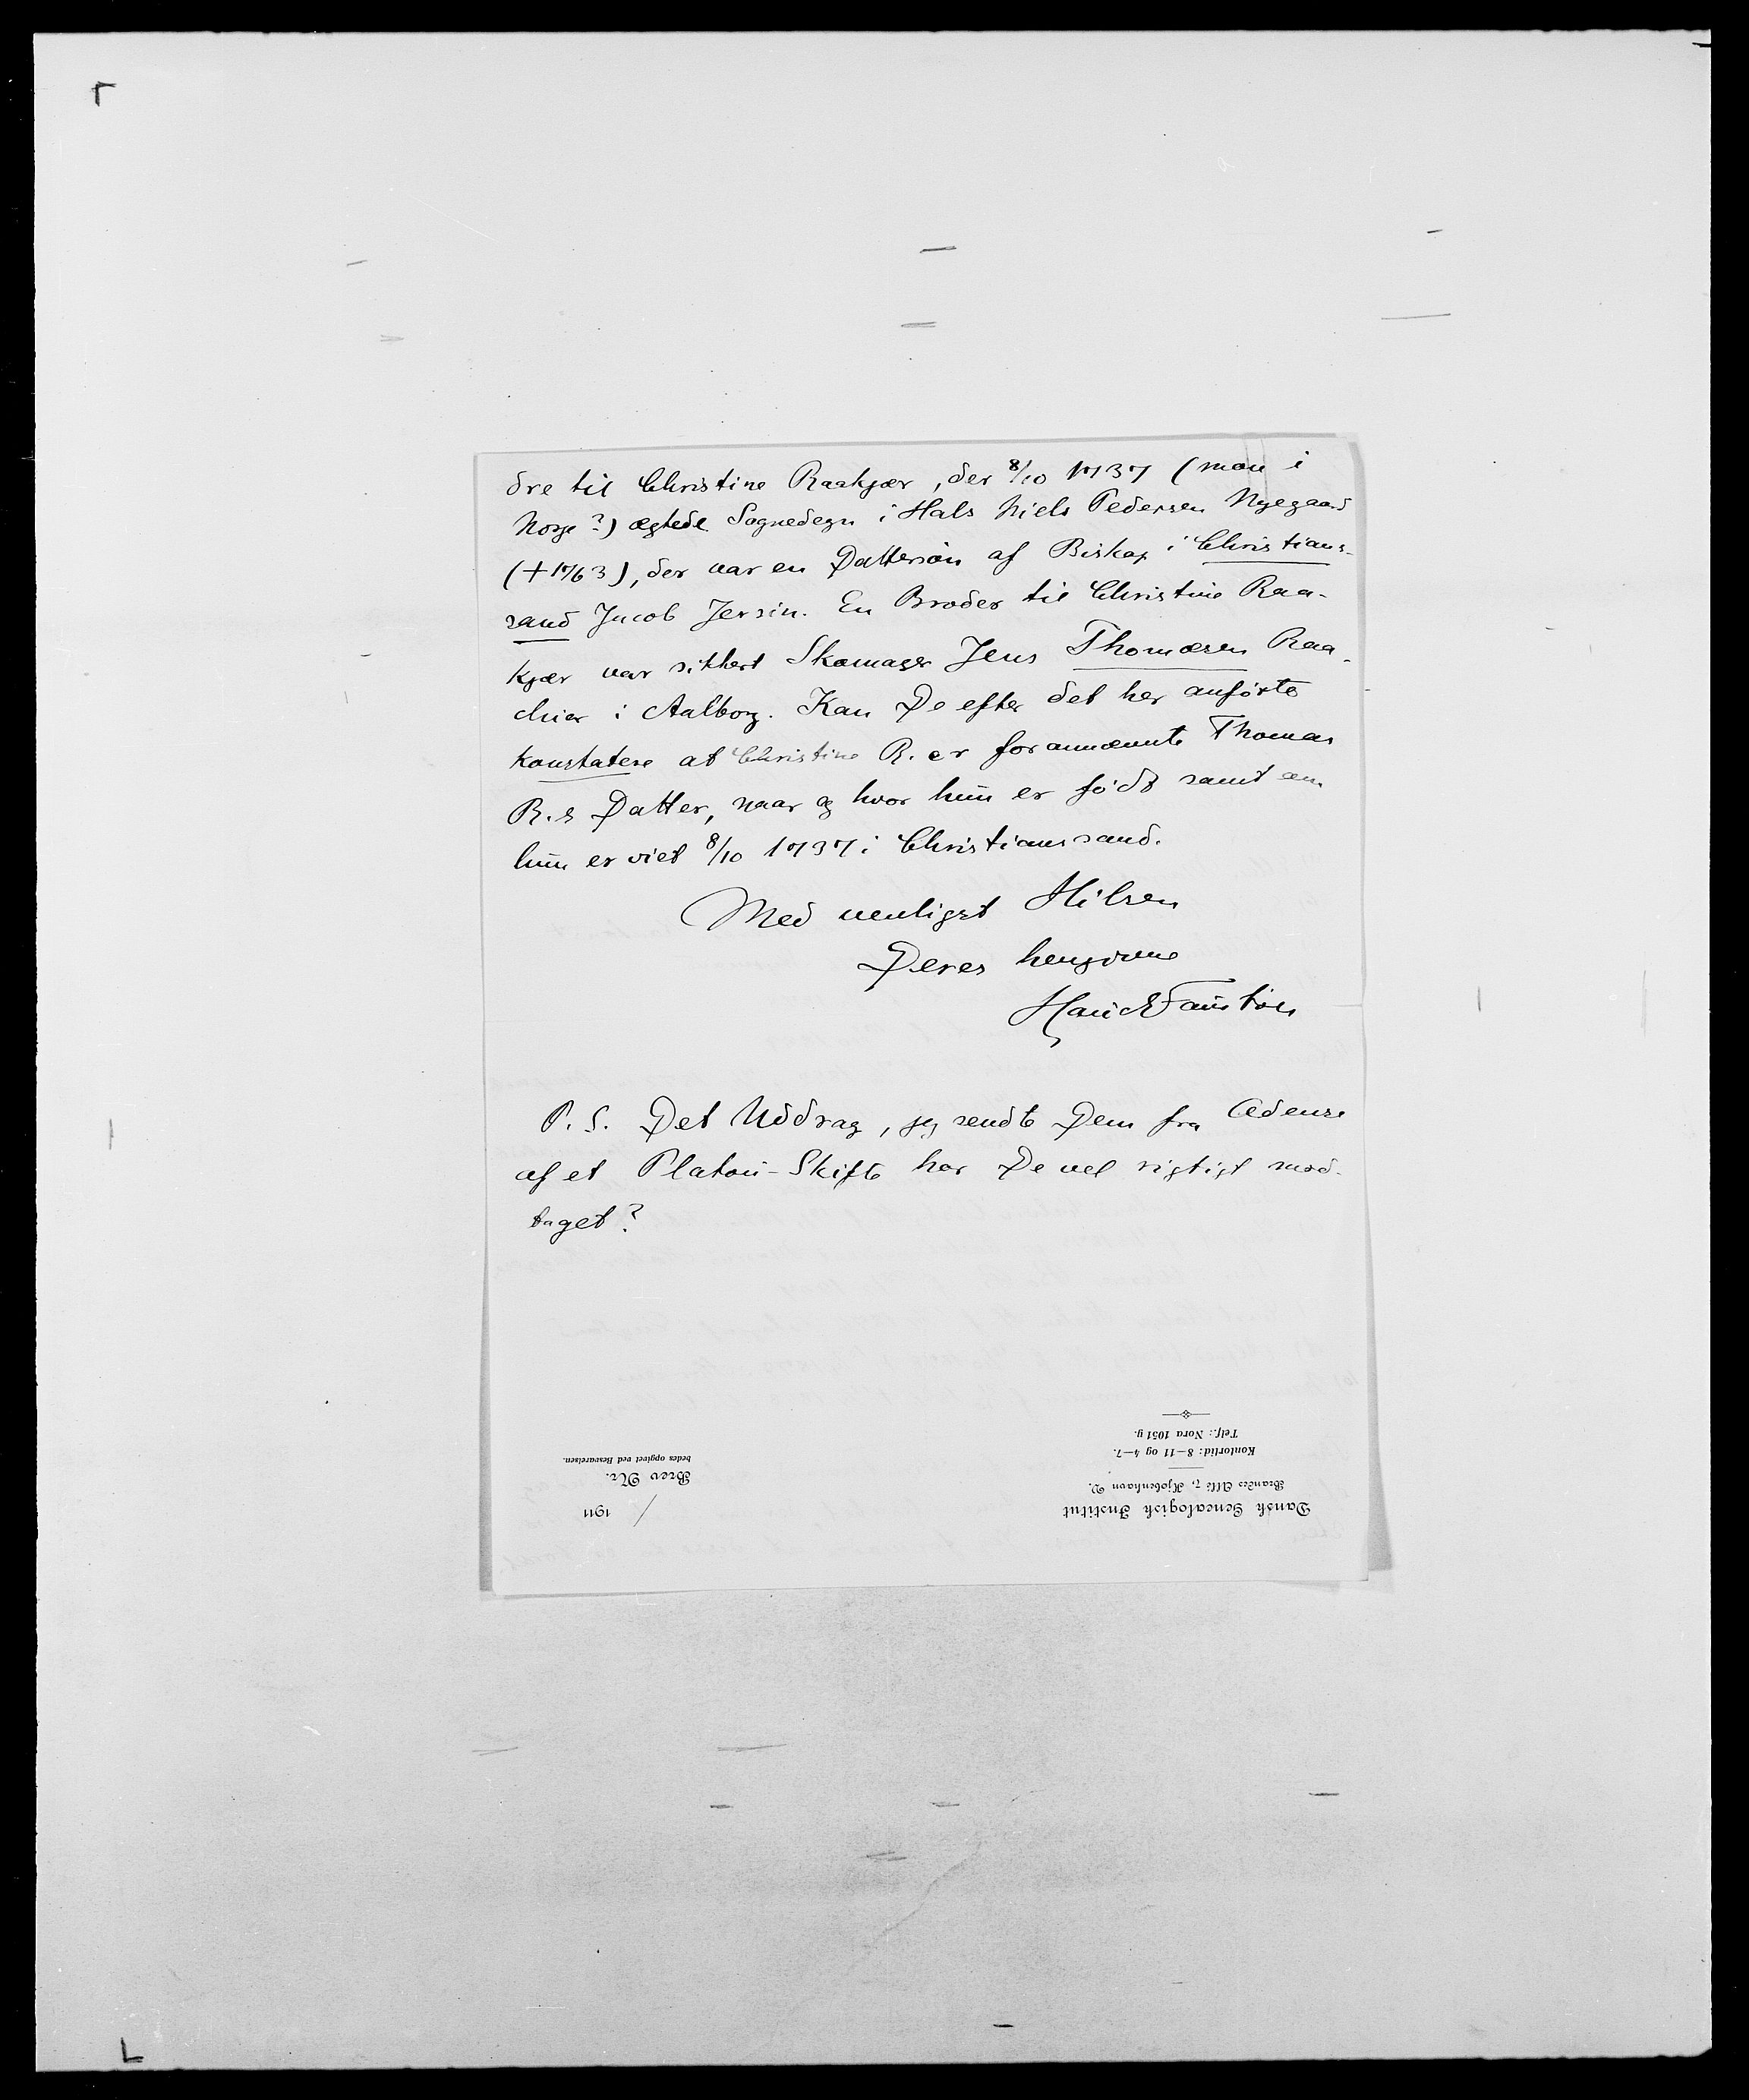 dre til Christine Raakjær, der 8/10 1737 (mon i
Norge?) ægtede Sognedegn i Hals Niels Pedersen Nyegaard
(†1763), der var en Dattersön af Biskop i Christians-
sand Jacob Jersin. En Broder til Christine Raa-
kjær var sikkert Skomager Jens Thomæsen Raa-
chier i Aalborg. Kan De efter det her anførte
konstatere at Christine R. er forannævnte Thomas
R.s Datter, naar og hvor hun er født samt om
hun er viet 8/10 1737 i Christianssand.
Med venligst Hilsen
Deres hengivne
Hauch Fausböll
P.S. Det Uddrag, jeg sendte Dem fra Odense
af et Platou-Skifte har De vel rigtigt mod-
taget?
Dansk Genealogisk Institut
Brandes Allé 7, Kjøbenhavn V.
Kontortid: 8–11 og 4–7.
Telf.: Nora 1051 y.
/ 1911
Brev Nr.
bedes opgivet ved Besvarelsen.